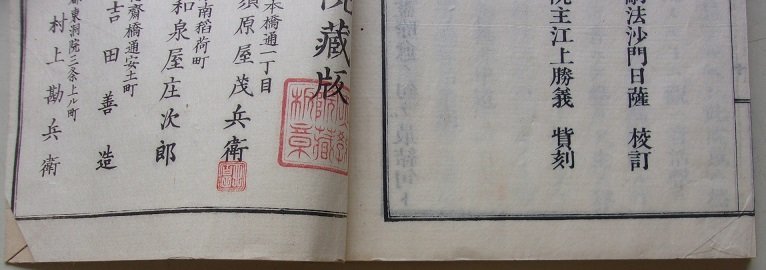 法沙門日薩 校訂
院主江上勝義 貲刻
藏版
本橋通一丁目
須原屋茂兵衛
南稲荷町
和泉屋庄次郎
齋橋通安土町
吉田善造
都東洞院三条上ル町
村上勘兵衛